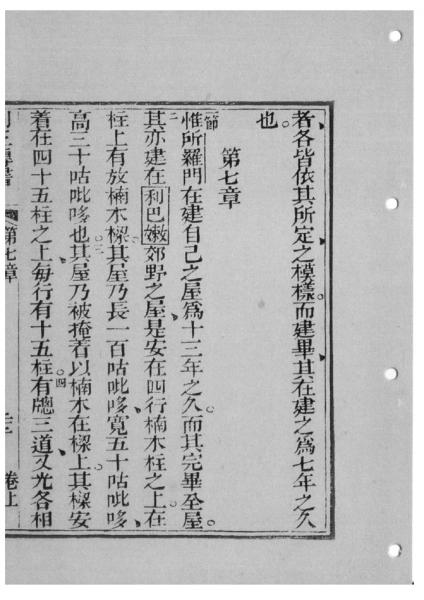 者各皆依其所定之模樣而建畢其在建之爲七年之久
也
第七章
一節 惟所羅門在建自己之屋爲十三年之久而其完畢全屋
二 其亦建在利巴嫩郊野之屋是安在四行楠木柱之上在
柱上有放楠木樑其屋乃長一百咕吡哆寬五十咕吡哆
高三十咕吡哆也三其屋乃被掩着以楠木在樑上其樑安
着在四十五柱之上每行有十五柱四有牕三道又光各相
第七章
卷上